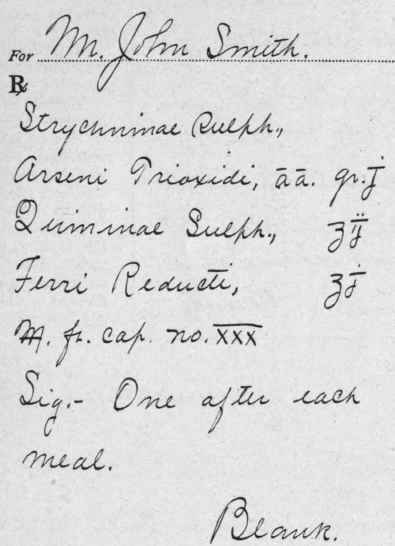 For Mr. John Smith.
℞
Strychninae Sulph.,
Arseni Trioxidi, āā. gr. j
Quininae Sulph., ʒij
Ferri Reducti, ʒj
M. ft. cap. no. XXX
Sig.- One after each
meal.
Blank.